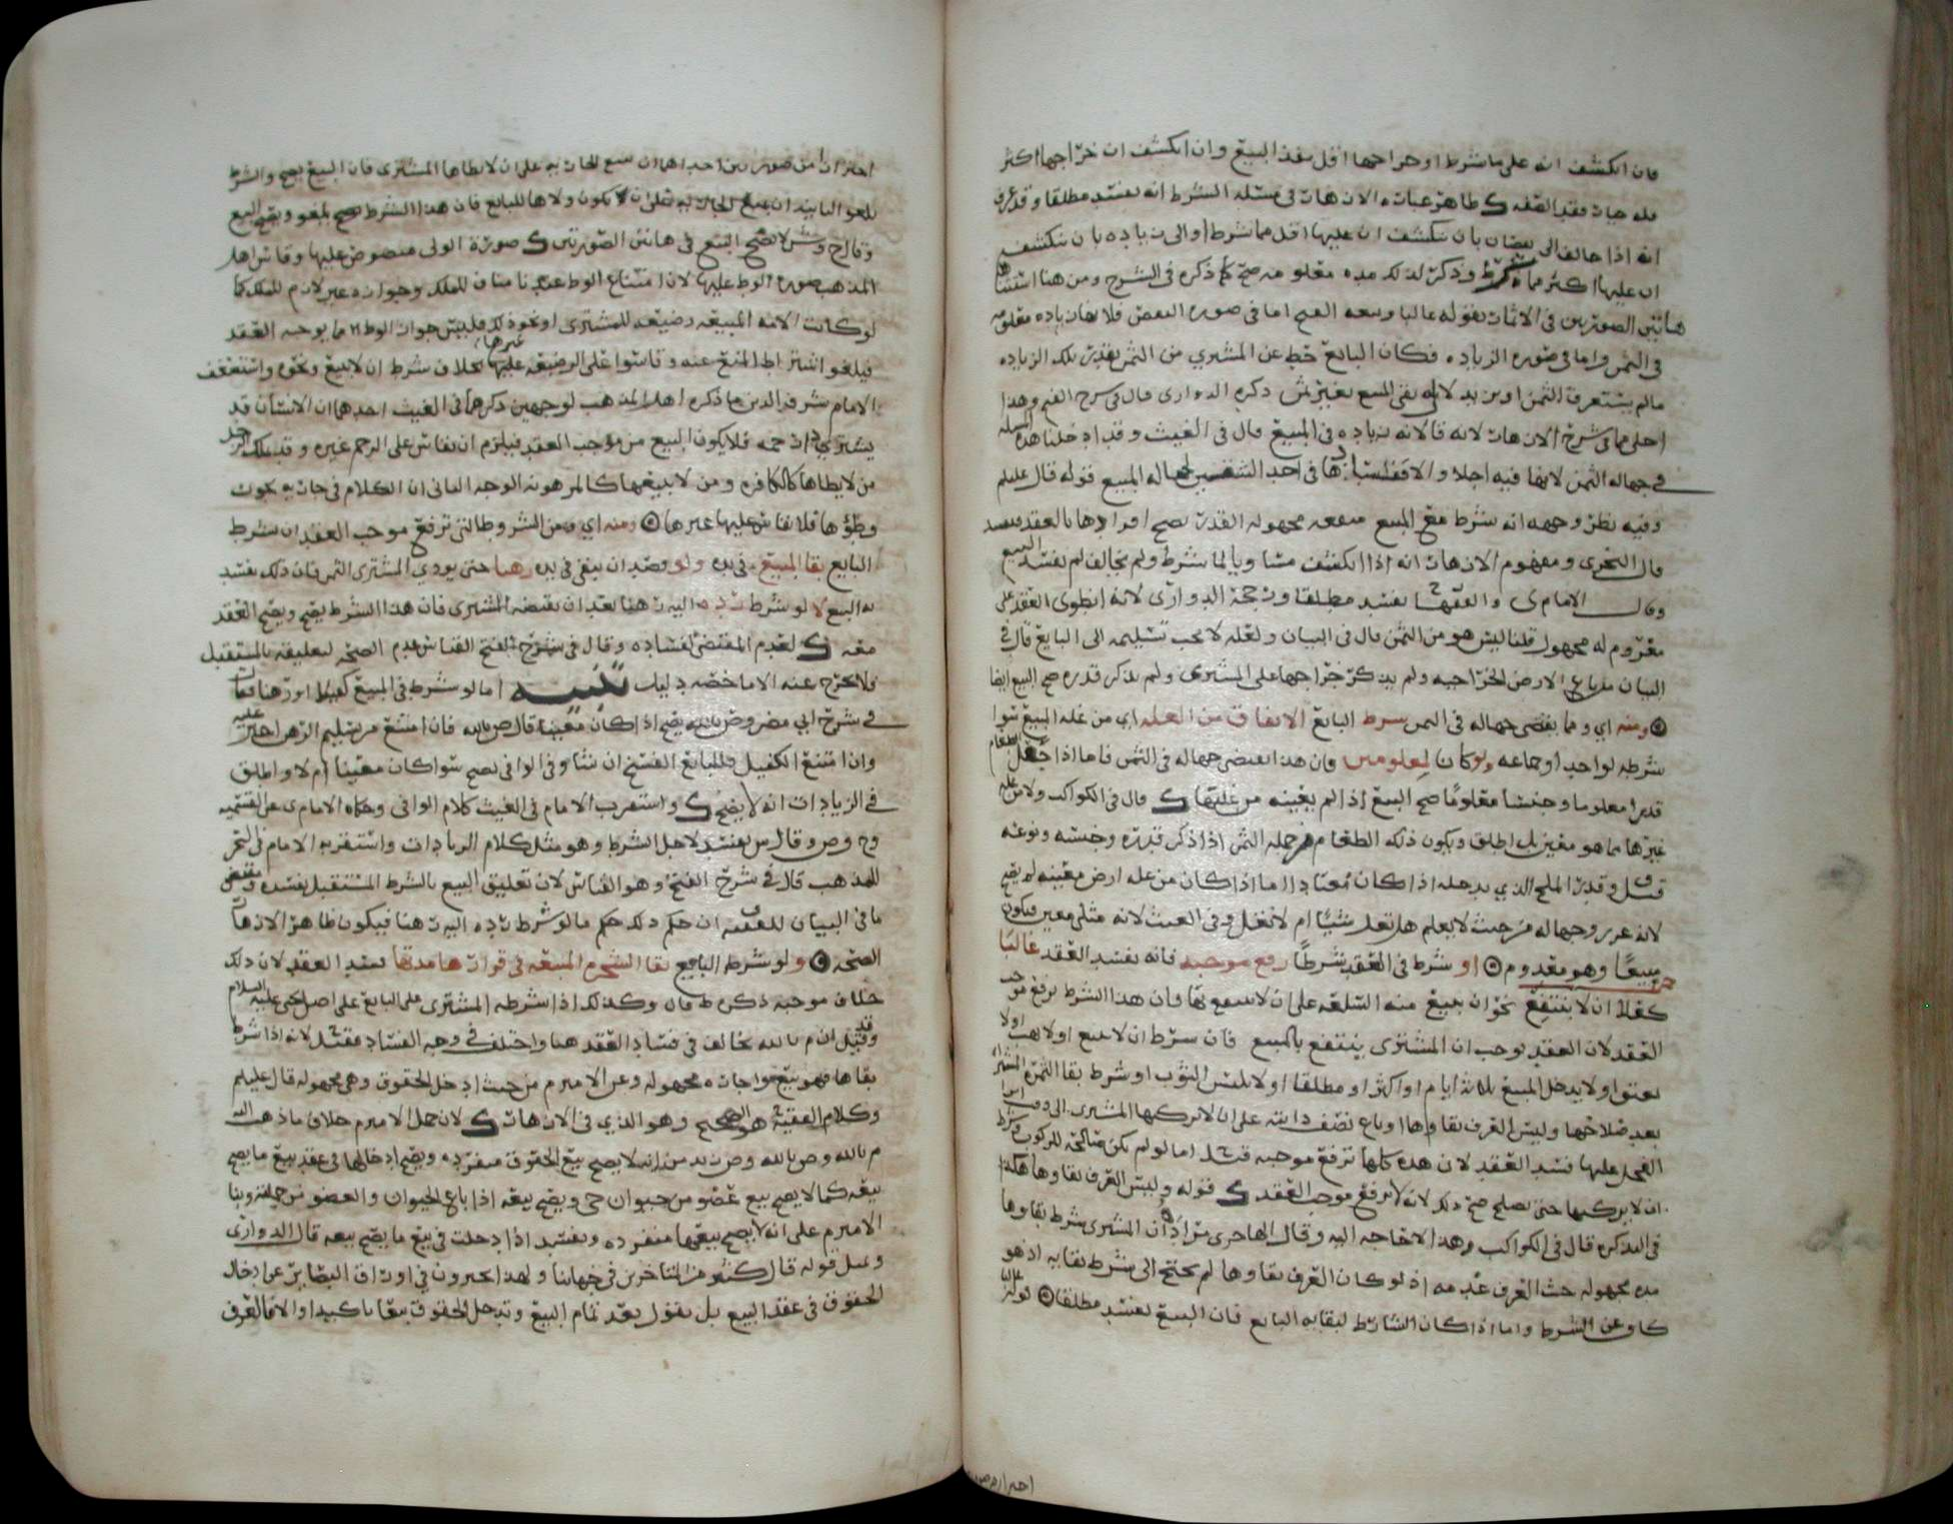 فان انكشف انه على ما شرط او خراجها اقل نفذ البيع وان انكشف ان خراجها اكثر
فله خيار فقد الصفه ظاهر عباره الازهار في مسئله الشرط انه يفسد مطلقا وقد عرف
انه اذا خالف الى نقصان بان ينكشف ان عليها اقل مما شرط او الى زياده بان ينكشف
ان عليها اكثر مما شرط وذكر لذلك مده معلومه صح كما ذكره في الشرح ومن هنا استثنا
هاتين الصورتين في الاثمار بقوله غالبا اما في صوره النقص فلانها زياده معلومه
في الثمن واما في صوره الزياده فكان البايع حط عن المشتري من الثمن بقدر تلك الزياده
مالم يستغرق الثمن او يزيد لانه بقى المبيع بغير ثمن ذكره الدواري قال في شرح الفتح وهذا
اجلى مما في شرح الازهار لانه قال لانه زياده في المبيع قال في الغيث وقد ادخلنا هذه المسله
في جهاله الثمن لانها فيه اجلا والا فقد لجهاله المبيع قوله قال عليلم
وفيه نظر وجهه انه شرط مع المبيع منفعه مجهوله القدر يصح افرادها بالعقد فيفسد
قال النجري ومفهوم الازهار انه اذا انكشف مساويا لما شرط ولم يخالف لم يفسد البيع
وقال الامام ى والفقيه ح يفسد مطلقا ورجحه الدواري لانه انطوى العقد على
مغروم له مجهول قلنا ليس هو من الثمن قال في البيان ولعله لا يجب تسليمه الى البايع قال في
البيان من باع الارض الخراجيه ولم يذكر خراجها على المشتري ولم يذكر قدره صح البيع ايضا
ومنه اي ومما يقتضي جهاله في الثمن شرط البايع الانفاق من الغله اي من غله المبيع سوا
شرطه لواحد او جماعه ولو كان لمعلومين فان هذا يقتضي جهاله في الثمن فاما اذا جعل الطعام
قدرا معلوما وجنسا معلوما صح البيع اذا لم يعينه من غلتها قال في الكواكب ولا من غله
غيرها مما هو معين بل اطلق ويكون ذلك الطعام من جمله الثمن اذا ذكر قدره وجنسه ونوعه
قيل وقدر الملح الذي يدخله اذا كان معتادا اما اذا كان من غله ارض معينه لم يصح
لانه غرر وجهاله من حيث لا يعلم هل تغل شيئا ام لا تغل وفي الغيث لانه مثلي معين فيكون
مبيعا وهو معدوم او شرط في العقد شرطا رفع موجبه فانه يفسد العقد غالبا
كعلى ان لا ينتفع نحو ان يبيع منه السلعه على ان لا ينتفع بها فان هذا الشرط يرفع موجب
العقد لان العقد يوجب ان المشتري ينتفع بالمبيع فان شرط ان لا يبيع او لا يهب او لا
يعتق او لا يدخل المبيع ثلاثه ايام او اكثر او مطلقا او لا يلبس الثوب او شرط بقا الثمره
بعد صلاحها وليس العرف بقاوها او باع نصف دابته على ان لا يركبها المشتري
الفحل عليها فسد العقد لان هذه كلها ترفع موجبه قيل اما لو لم تكن صالحه للركوب وشرط
ان لا يركبها حتى تصلح صح ذلك لانه لا يرفع موجب العقد قوله وليس العرف بقاوها هكذا
في التذكره قال في الكواكب وهذا لا حاجه اليه وقال الهاجري مراده ان المشتري شرط بقاوها
مده مجهوله حيث العرف عدمه اذ لو كان العرف بقاوها لم يحتج الى شرط بقايه اذ هو
كاف عن الشرط واما اذا كان الشارط لبقايه البايع فان البيع يفسد مطلقا قوله غالبا
احترازا من صورتين
احترازا من صورتين احداهما ان يبيع الجاريه على ان لا يطاها المشتري فان البيع يصح والشرط
يلغو الثانيه ان يبيع الجاريه على ان يكون ولاها للبايع فان هذا الشرط يلغو ويصح البيع
وقال ح وش لا يصح البيع في هاتين الصورتين صوره الولى منصوص عليها وقاس اهل
المذهب صوره الوطى عليها لان امتناع الوطى عندنا مناف للملك وجوازه غير لازم للملك كما
لو كانت الامه المبيعه رضيعه للمشتري او نحو ذلك فليس جواز الوطى مما يوجبه العقد
فيلغو اشتراط المنع عنه وقاسوا على الرضيعه غيرها بخلاف شرط ان لا يبيع ونحوه واستضعف
الامام شرف الدين ما ذكره اهل المذهب لوجهين ذكرهما في الغيث احدهما ان الانسان قد
يشتري ذا رحمه فلا يكون البيع من موجب العقد فيلزم ان يقاس على الرحم غيره وقد يملك الرجل
من لا يطاها كالكافره ومن لا يبيعها كالمرهونه الوجه الثاني ان الكلام في جاريه يجوز
وطؤها فلا يقاس عليها غيرها ومنه اي ومن الشروط التي ترفع موجب العقد ان شرط
البايع بقا المبيع في يده ولو قصد ان يبقى في يده رهنا حتى يودي المشتري الثمن فان ذلك يفسد
به البيع لا لو شرط رده اليه رهنا بعد ان يقبضه المشتري فان هذا الشرط يصح ويصح العقد
معه لعدم المقتضي لفساده وقال في شرح الفتح القياس عدم الصحه لتعليقه بالمستقبل
فلا يخرج عنه الا ما خصه دليل تنبيه اما لو شرط في المبيع كفيلا او رهنا فقال
في شرح ابي مضر وض بالله يصح اذا كان معينا قال ص بالله فان امتنع من تسليم الرهن اجبر عليه
وان امتنع الكفيل فللبايع الفسخ ان شا وفي الوافي يصح سوا كان معينا ام لا واطلق
في الزيادات انه لا يصح واستقرب الامام في الغيث كلام الوافي وحكاه الامام ى عن القسميه
وح وص وقال س يفسد لاجل الشرط وهو مثل كلام الزيادات واستقربه الامام في البحر
للمذهب قال في شرح الفتح وهو القياس لان تعليق البيع بالشرط المستقبل يفسده ومقتضى
ما في البيان للفقيه ان حكم ذلك حكم ما لو شرط رده اليه رهنا فيكون ظاهر الازهار
الصحه ولو شرط البايع بقا الشجره المبيعه في قرارها مدتها فسد العقد لان ذلك
خلاف موجبه ذكره ط قال وكذلك اذا شرطه المشتري على البايع على اصل يحيى عليه السلام
وقيل ان م بالله يخالف في فساد العقد هنا واختلف في وجه الفساد فقيل لانه اذا شرط
بقاها فهو بيع واجاره مجهوله وعن الاميرم من حيث ادخل الحقوق وهي مجهوله قال عليلم
وكلام الفقيه ح هو الصحيح وهو الذي في الازهار لان جعل الاميرم خلاف ما ذهب اليه
م بالله وص بالله وض زيد من انه لا يصح بيع الحقوق منفرده ويصح ادخالها في عقد بيع ما يصح
بيعه كما لا يصح بيع عضو من حيوان حي ويصح بيعه اذا باع الحيوان والعضو من جملته وبنا
الاميرم على انه لا يصح بيعها منفرده ويفسد اذا دخلت في بيع ما يصح بيعه قال الدواري
وبمثل قوله قال كثير من المتاخرين في جهاتنا ولهذا يحترزون في اوراق البصاير عن ادخال
الحقوق في عقد البيع بل يقول بعد تمام البيع وتدخل الحقوق تبعا تاكيدا والا فالعرف